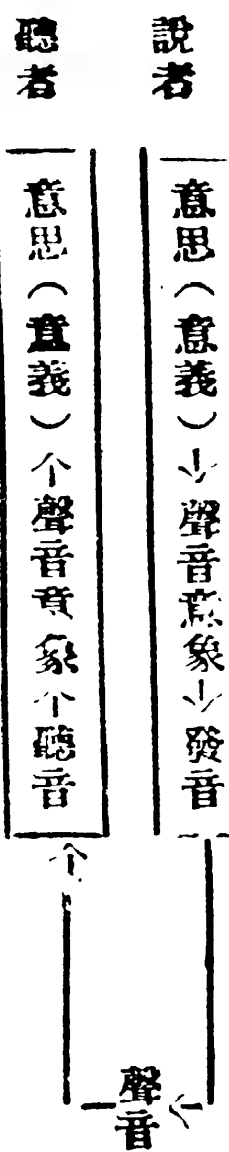 說者
意思(意義)↓聲音意象↓發音
聲音
聽者
意思(意義)↑聲音意象↑聽音